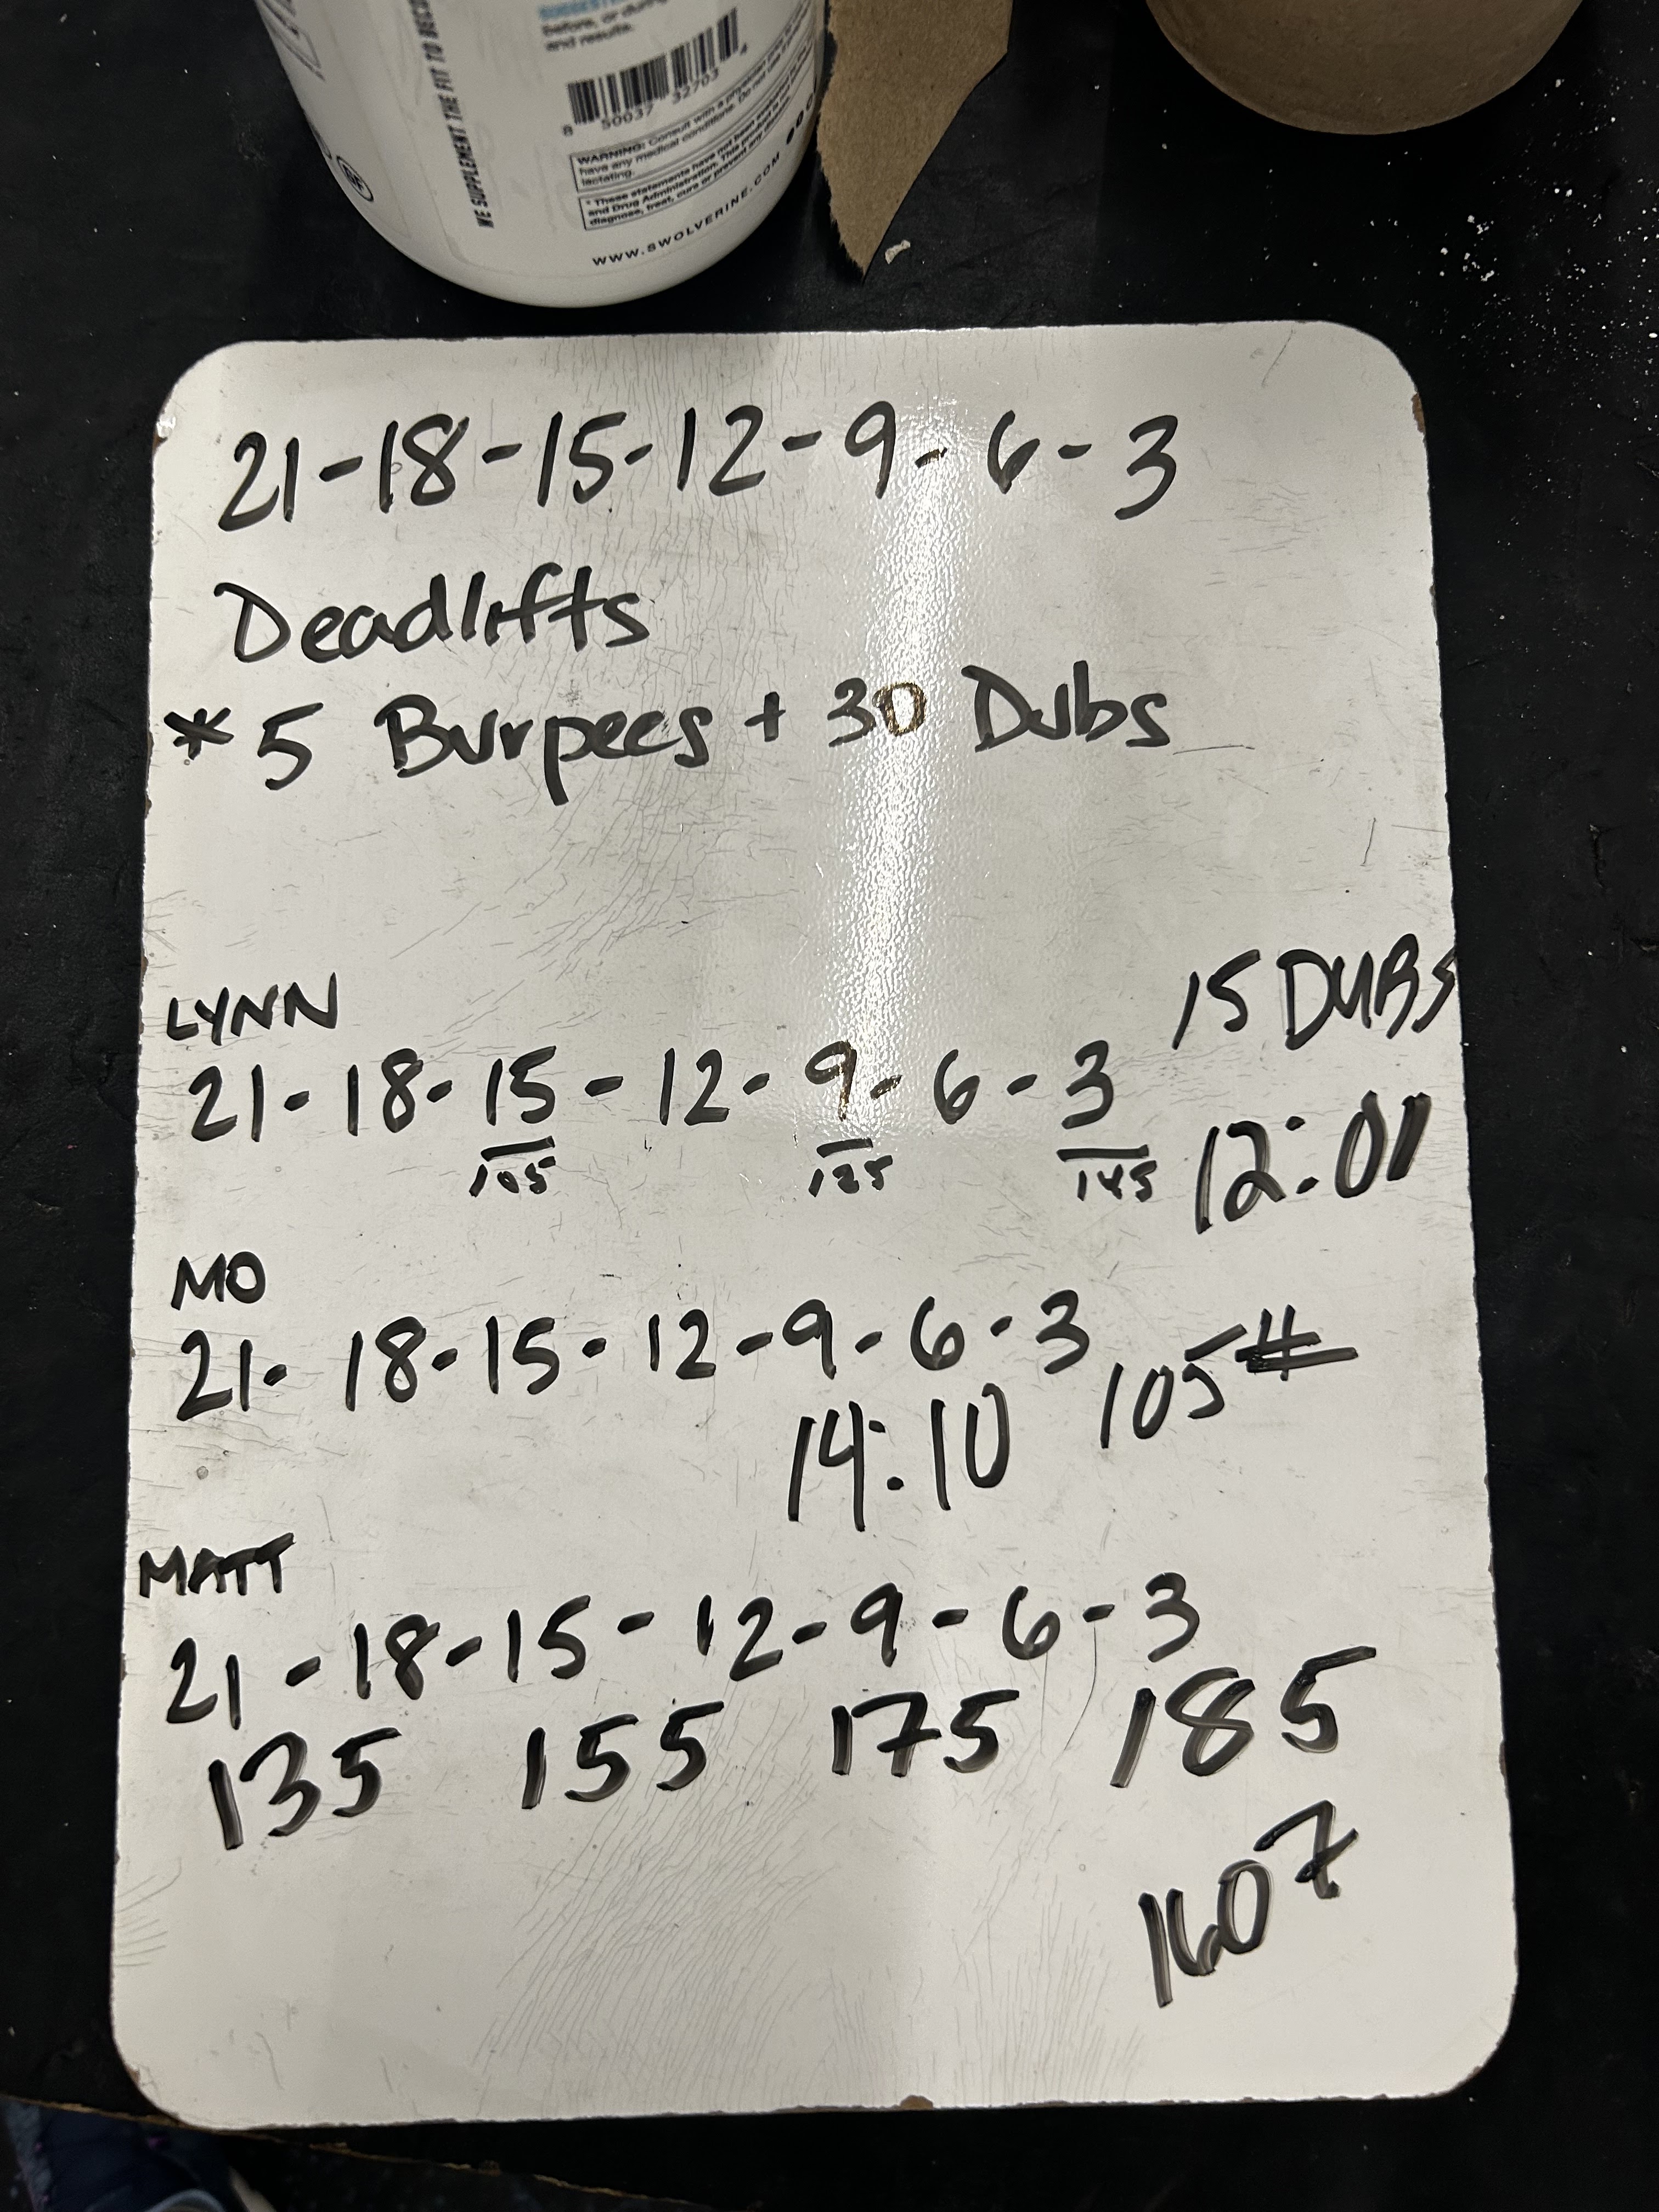 WE SUPPLEMENT THE FIT TO
before, or during
and results.
8 50037 32703 4
WARNING: Consult with a physician
have any medical conditions. Do not use
lactating.
* These statements have not been
and Drug Administration. This
diagnose, treat, cure or prevent any
WWW.SWOLVERINE.COM
21-18-15-12-9-6-3
Deadlifts
* 5 Burpees + 30 Dubs
LYNN
15 DUBS
21-18-15-12-9-6-3
105 125 145
12:01
MO
21-18-15-12-9-6-3 105#
14:10
MATT
21-18-15-12-9-6-3
135 155 175 185
1607